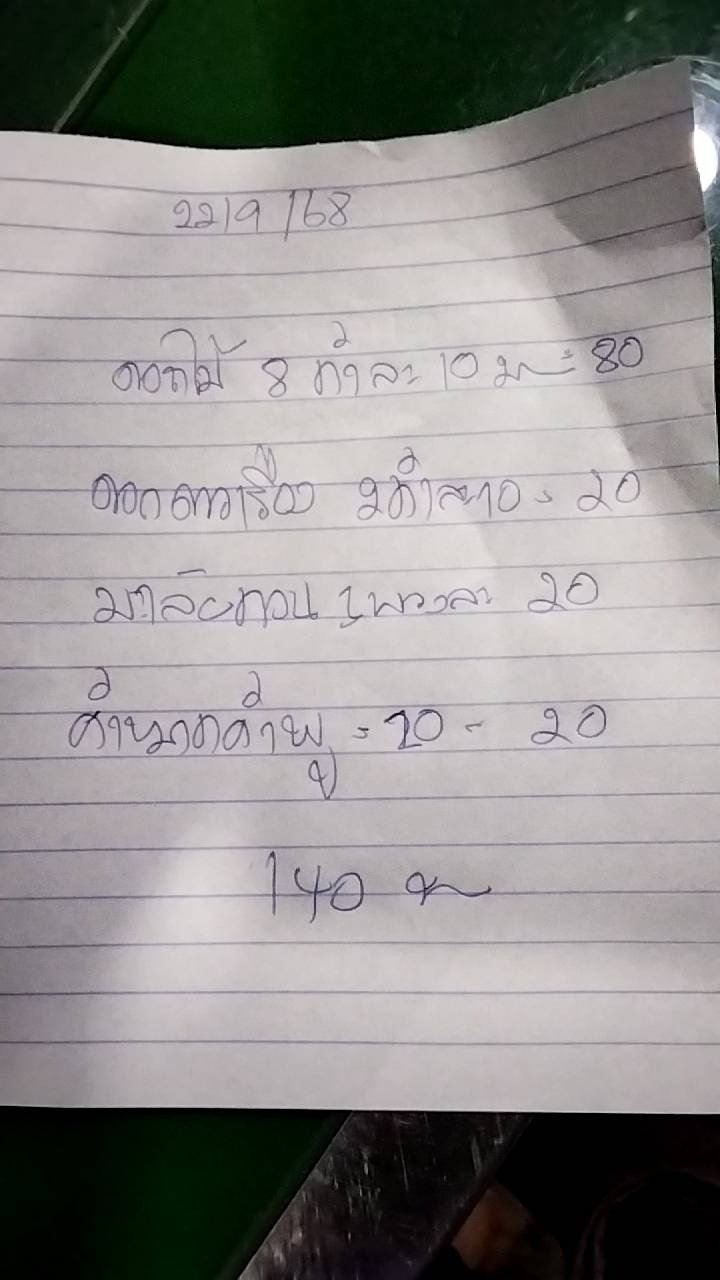 22/9/68
ดอกไม้ 8 กำละ 10 บ = 80
ดอกดาวเรือง 2 กำละ 10 = 20
มาลัยกอน 1 พวงละ 20
ค่าหมากค่าพลู = 20 - 20
140 บ